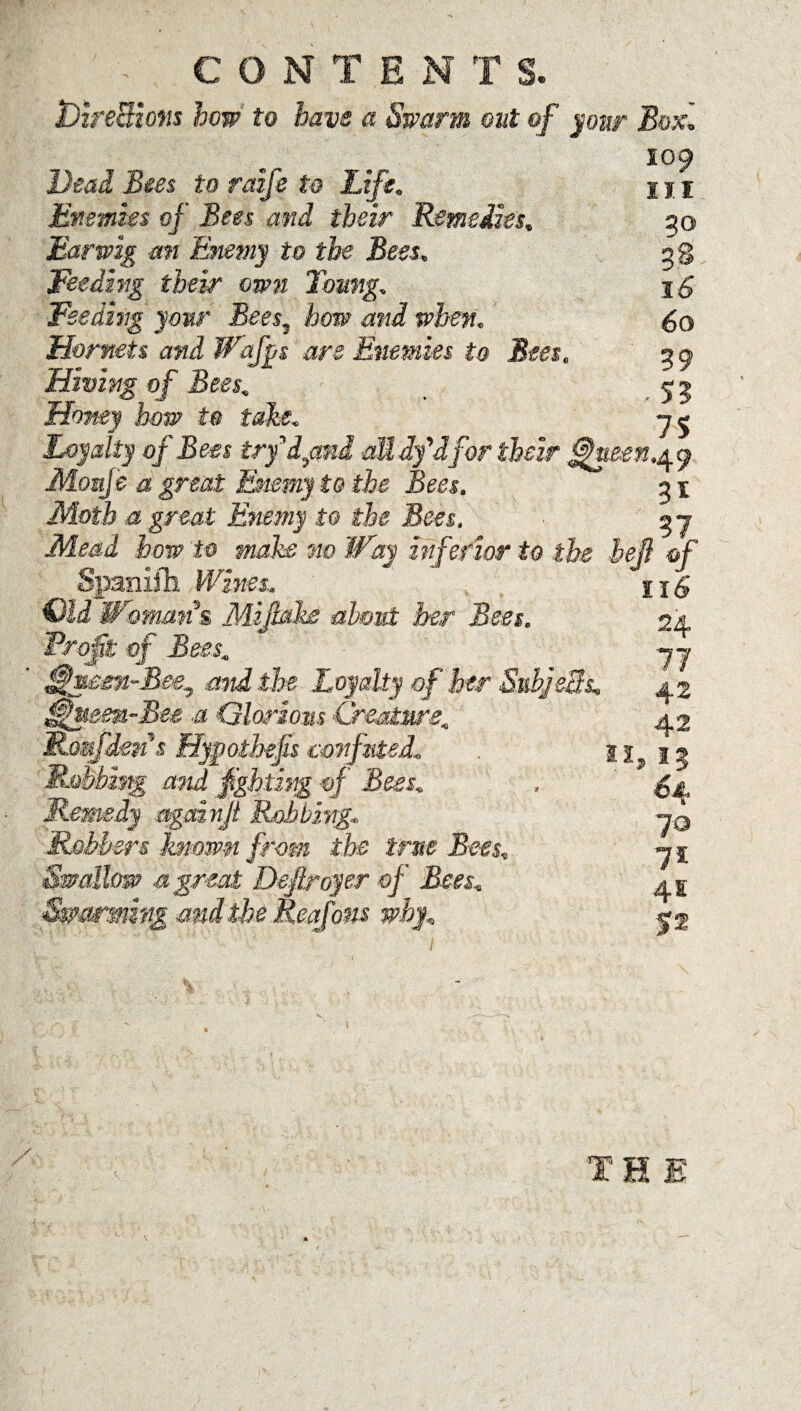 CONTENTS.
Directions how to have a Swarm out of your Box.
109
Dead Bees to raiſe to Life. 111
Enemies of Bees and their Remedies. 30
Earwig an Enemy to the Bees. 38
Feeding their own Young. 16
Feeding your Bees, how and when. 60
Hornets and Waſps are Enemies to Bees. 39
Hiving of Bees. 53
Honey how to take. 75
Loyalty of Bees try'd, and all dy'd for their Queen. 49
Mouſe a great Enemy to the Bees. 31
Moth a great Enemy to the Bees. 37
Mead how to make no Way inferior to the beſt of
Spaniſh Wines. 116
Old Woman's Miſtake about her Bees. 24
Profit of Bees. 77
Queen-Bee, and the Loyalty of her Subjects. 42
Queen-Bee a Glorious Creature. 42
Rouſden's Hypotheſis confuted. 11, 13
Robbing and fighting of Bees. 64
Remedy againſt Robbing. 70
Robbers known from the true Bees. 71
Swallow a great Deſtroyer of Bees. 41
Swarming and the Reaſons why. 52
THE